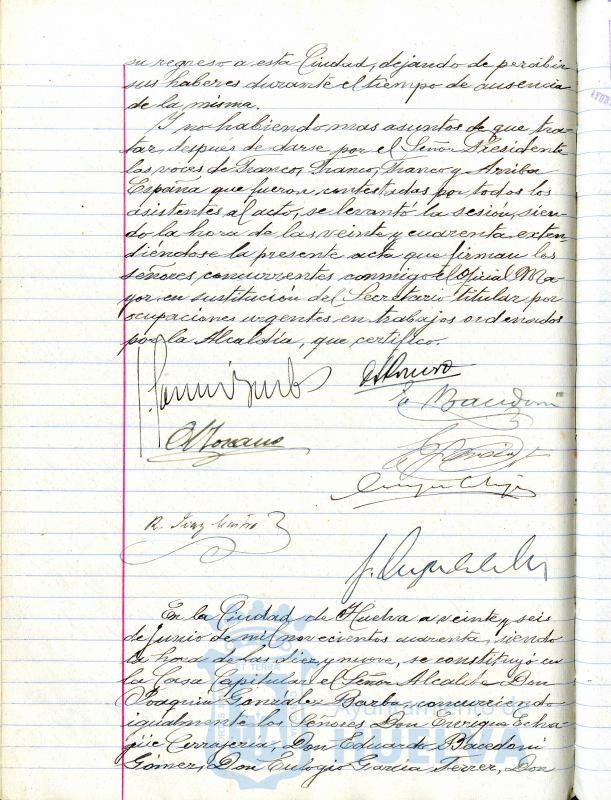 su regreso a esta Ciudad, dejando de percibir
sus haberes durante el tiempo de ausencia
de la misma.
Y no habiendo mas asuntos de que tra-
tar, despues de darse por el Señor Presidente
las voces de Franco, Franco, Franco y Arriba
España que fueron contestadas por todos los
asistentes al acto, se levantó la sesión, sien-
do la hora de las veinte y cuarenta exten-
diéndose la presente acta que firman los
señores concurrentes conmigo el Oficial Ma-
yor en sustitución del Secretario titular por
ocupaciones urgentes en trabajos ordenados
por la Alcaldía, que certifico.
En la Ciudad de Huelva a veinte y seis
de Junio de mil novecientos cuarenta, siendo
la hora de las diez y nueve, se constituyó en
la Casa Capitular el Señor Alcalde Don
Joaquin González Barba concurriendo
igualmente los Señores Don Enrique Echa-
güe Cerrajería, Don Eduardo Bacedoni
Gómez, Don Eulogio García Ferrer, Don
Ayuntamiento de
HUELVA